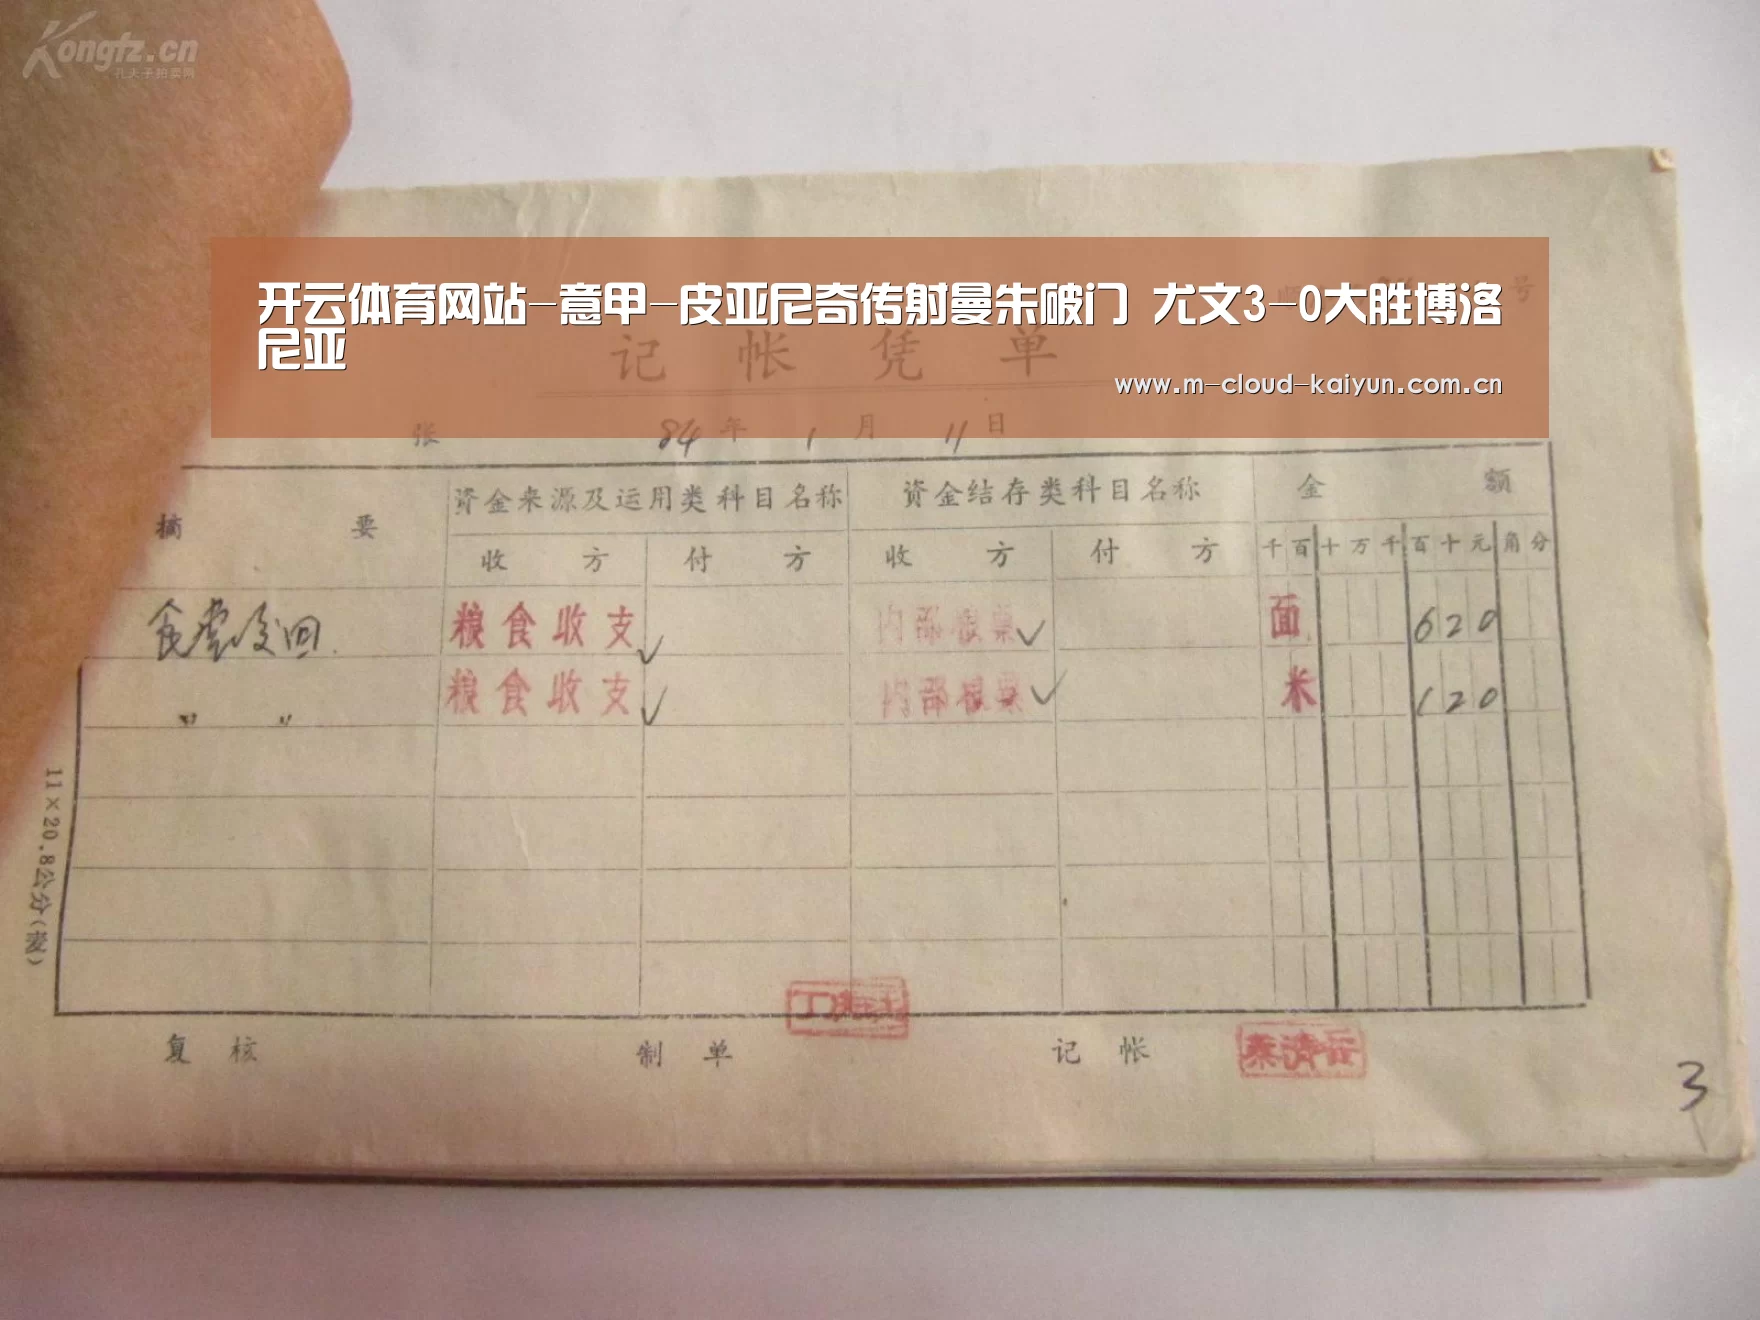 Kongfz.cn
孔夫子拍卖网
开云体育网站-意甲-皮亚尼奇传射曼朱破门 尤文3-0大胜博洛
尼亚
www.m-cloud-kaiyun.com.cn
号
记帐凭单
张 84年1月11日
摘要 资金来源及运用类科目名称 资金结存类科目名称 金额
收方 付方 收方 付方 千百十万千百十元角分
食堂交回 粮食收支 内部粮票 面 620
〃 〃 粮食收支 内部粮票 米 120
11×20.8公分
复核 制单 记帐
3